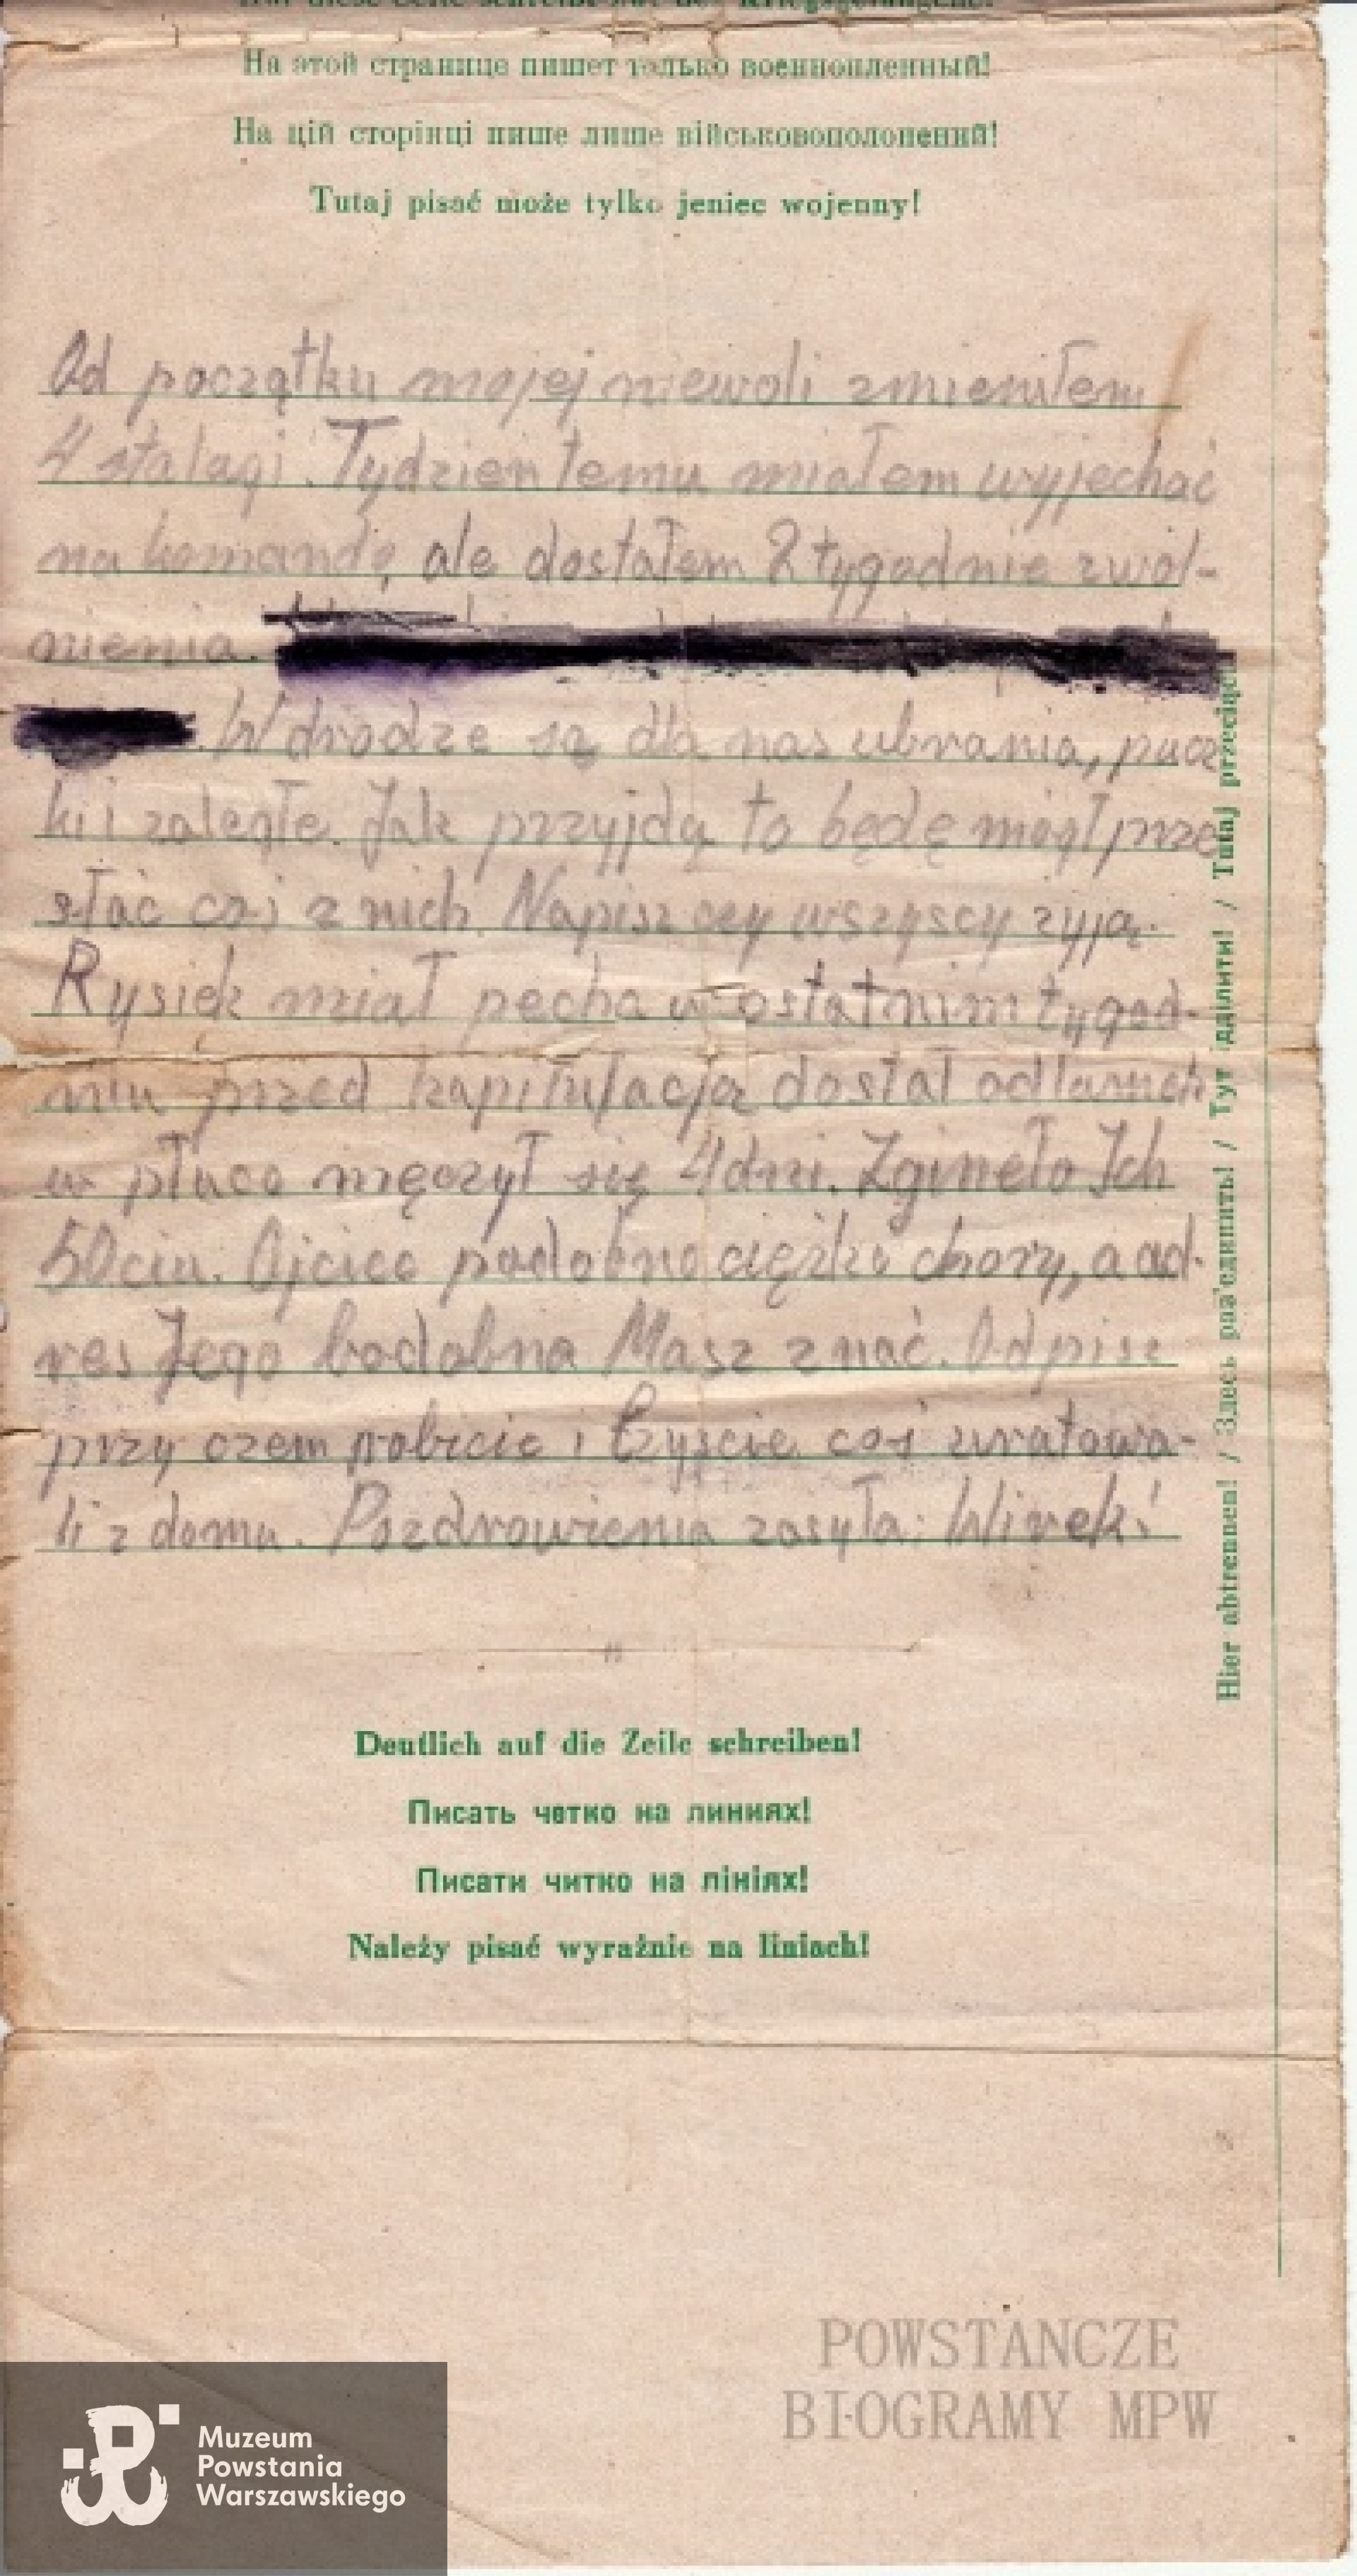 Nur diese Seite schreibt nur der Kriegsgefangene!
На этой странице пишет только военнопленный!
На цій сторінці пише лише військовополонений!
Tutaj pisać może tylko jeniec wojenny!
Od początku mojej niewoli zmieniłem
4 stalagi. Tydzień temu miałem wyjechać
na komandę, ale dostałem 2 tygodnie zwol-
nienia.
W drodze są dla nas ubrania, pacz
ki i zaległe. Jak przyjdą to będę mógł prze
słać coś z nich. Napisz czy wszyscy żyją.
Rysiek miał pecha w ostatnim tygod-
niu przed kapitulacją dostał odłamek
w płuco męczył się 4 dni. Zginęło Ich
50ciu. Ojciec podobno ciężko chory, a ad-
res Jego bodobna Masz znać. Odpisz
przy czem robicie i czyście coś uratowa-
li z domu. Pozdrowienia zasyła: Wirek!
Deutlich auf die Zeile schreiben!
Писать четко на линиях!
Писати читко на лініях!
Należy pisać wyraźnie na liniach!
Hier abtrennen! / Здесь раз'единить! / Тут дділити! / Tutaj przeciąć!
POWSTAŃCZE
BIOGRAMY MPW
Muzeum
Powstania
Warszawskiego